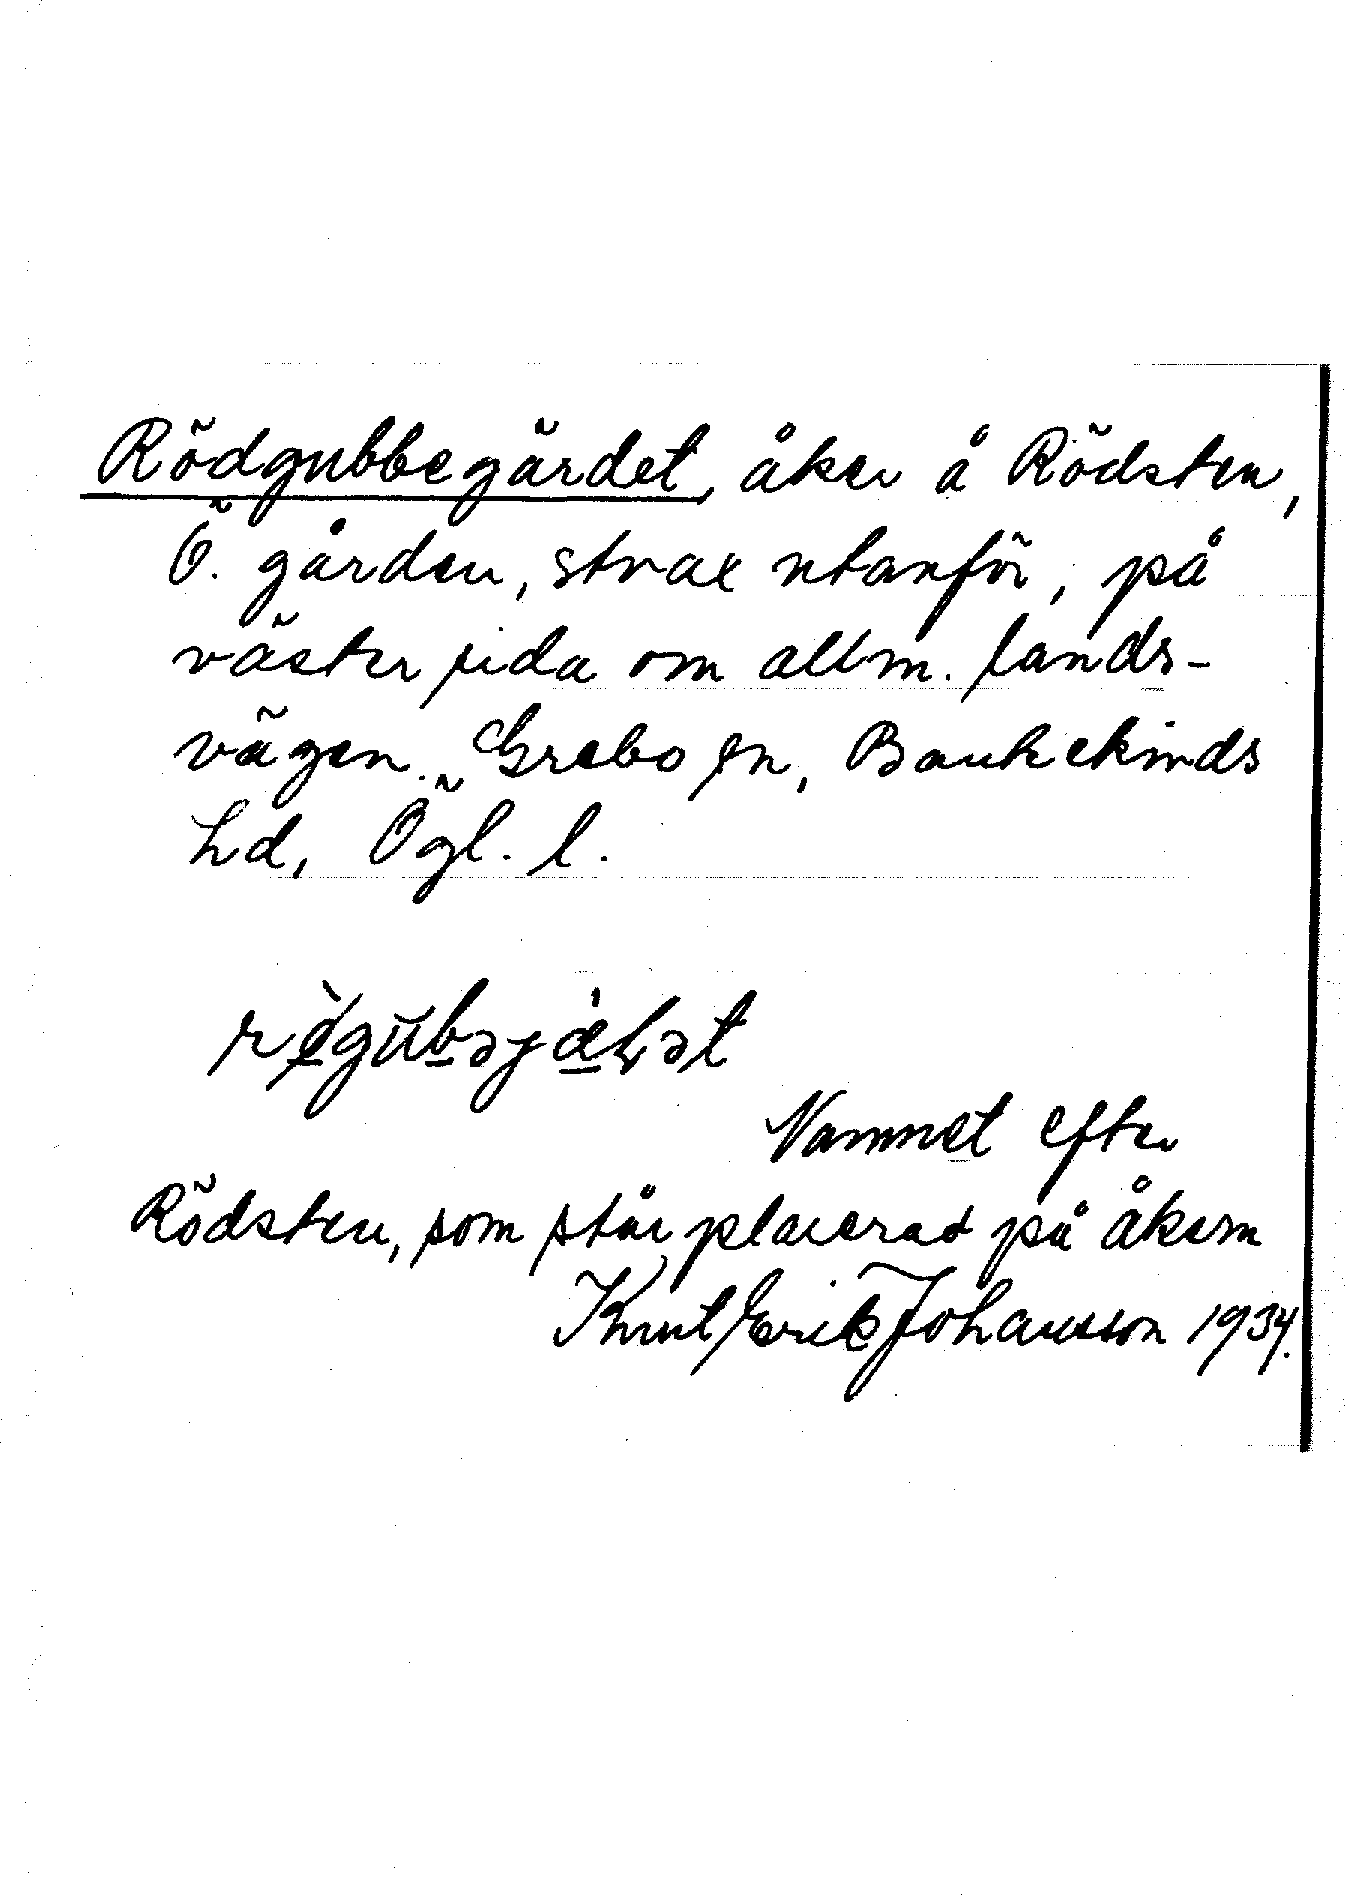 Rödgubbegärdet, åker å Rödsten,
Ö. gården, strax utanför, på
väster sida om allm. lands-
vägen. Grebo sn, Bankekinds
hd, Ögl. l.
Namnet efter
Rödsten, som står placerad på åkern
Knut Erik Johansson 1934.